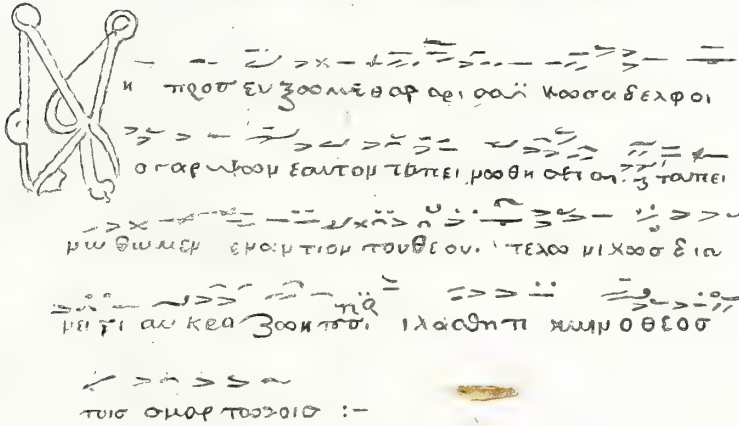 Μη προσευξωμεθα φαρισαϊκωσ αδελφοι
ο γαρ υψων εαυτον ταπεινωθησεται. ταπει
νωθωμεν εναντιον του θεου. τελωνικωσ δια
κραζοντεσ. ιλασθητι ημιν ο θεοσ
τοισ αμαρτωλοισ :-